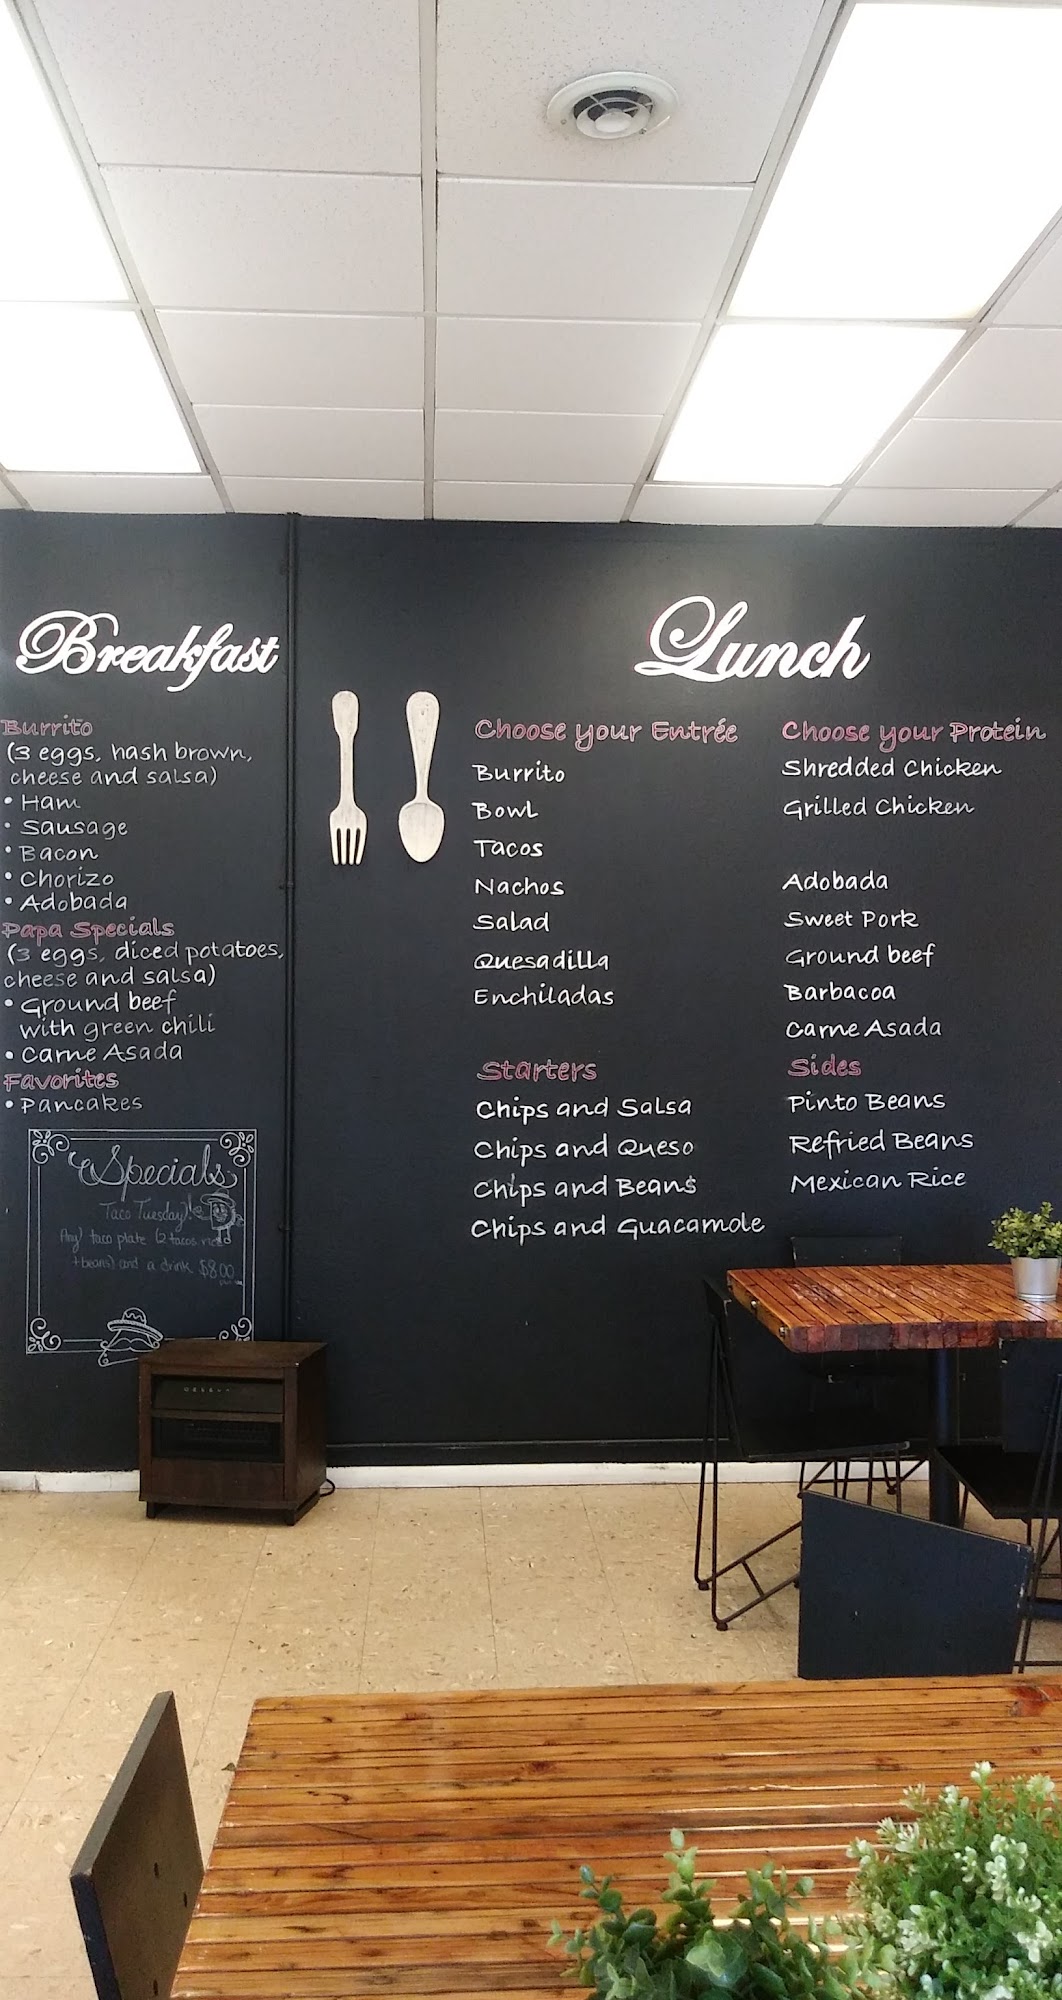 Breakfast
Burrito
(3 eggs, hash brown,
cheese and salsa)
• Ham
• Sausage
• Bacon
• Chorizo
• Adobada
Papa Specials
(3 eggs, diced potatoes,
cheese and salsa)
• Ground beef
with green chili
• Carne Asada
Favorites
• Pancakes
Specials
Taco Tuesday!
Any taco plate (2 tacos, rice
+ beans) and a drink $8.00
Lunch
Choose your Entrée
Burrito
Bowl
Tacos
Nachos
Salad
Quesadilla
Enchiladas
Starters
Chips and Salsa
Chips and Queso
Chips and Beans
Chips and Guacamole
Choose your Protein
Shredded Chicken
Grilled Chicken
Adobada
Sweet Pork
Ground beef
Barbacoa
Carne Asada
Sides
Pinto Beans
Refried Beans
Mexican Rice